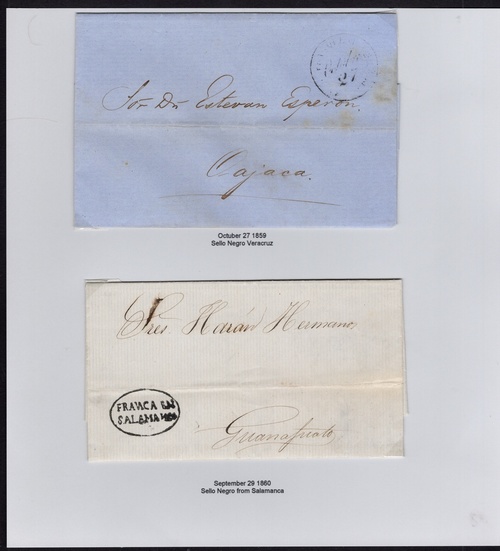 Sor Dn Estevan Esperon.
Oajaca.
27
Octuber 27 1859
Sello Negro Veracruz
Sres. Harán Hermanos
FRANCA EN
SALAMANCA
Guanajuato
September 29 1860
Sello Negro from Salamanca